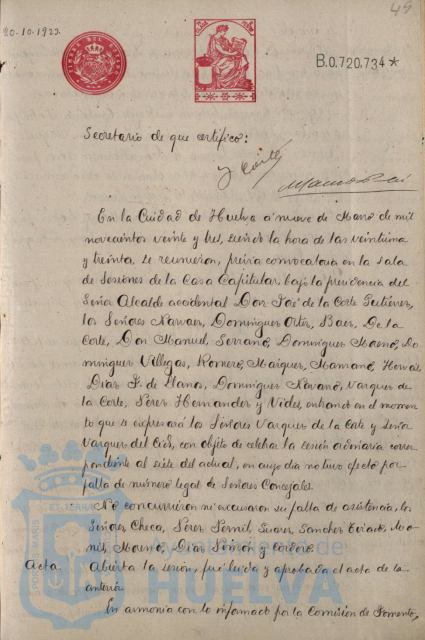 49
20-10-1923.
TIMBRE DEL ESTADO
B.0.720.734 *
Secretario de que certifico:
En la Ciudad de Huelva a nueve de Marzo de mil
novecientos veinte y tres, siendo la hora de las veintiuna
y treinta, se reunieron, previa convocatoria en la sala
de Sesiones de la Casa Capitular, bajo la presidencia del
Señor Alcalde accidental Don José de la Corte Gutierrez,
los Señores Narvaez, Dominguez Ortiz, Baez, De la
Corte, Don Manuel, Serrano, Dominguez Moreno, Do
minguez Villegas, Romero, Marquez,
Diaz F. de Llanos, Dominguez Navarro, Vazquez de
la Corte, Perez Hernandez y Vides, entrando en el momen
to que se expresará los Señores Vazquez de la Corte y Señor
Vazquez del Cid, con objeto de celebrar la sesión ordinaria corres
pondiente al siete del actual, en cuyo dia no tuvo efecto por
falta de número legal de Señores Concejales.
No concurrieron ni excusaron su falta de asistencia, los
Señores Checa, Perez Suarez, Sanchez
Moreno, Diaz Simon y Cordero.
Acta. Abierta la sesión, fué leida y aprobada el acta de la
anterior.
En armonia con lo informado por la Comisión de Fomento,
Ayuntamiento de
HUELVA